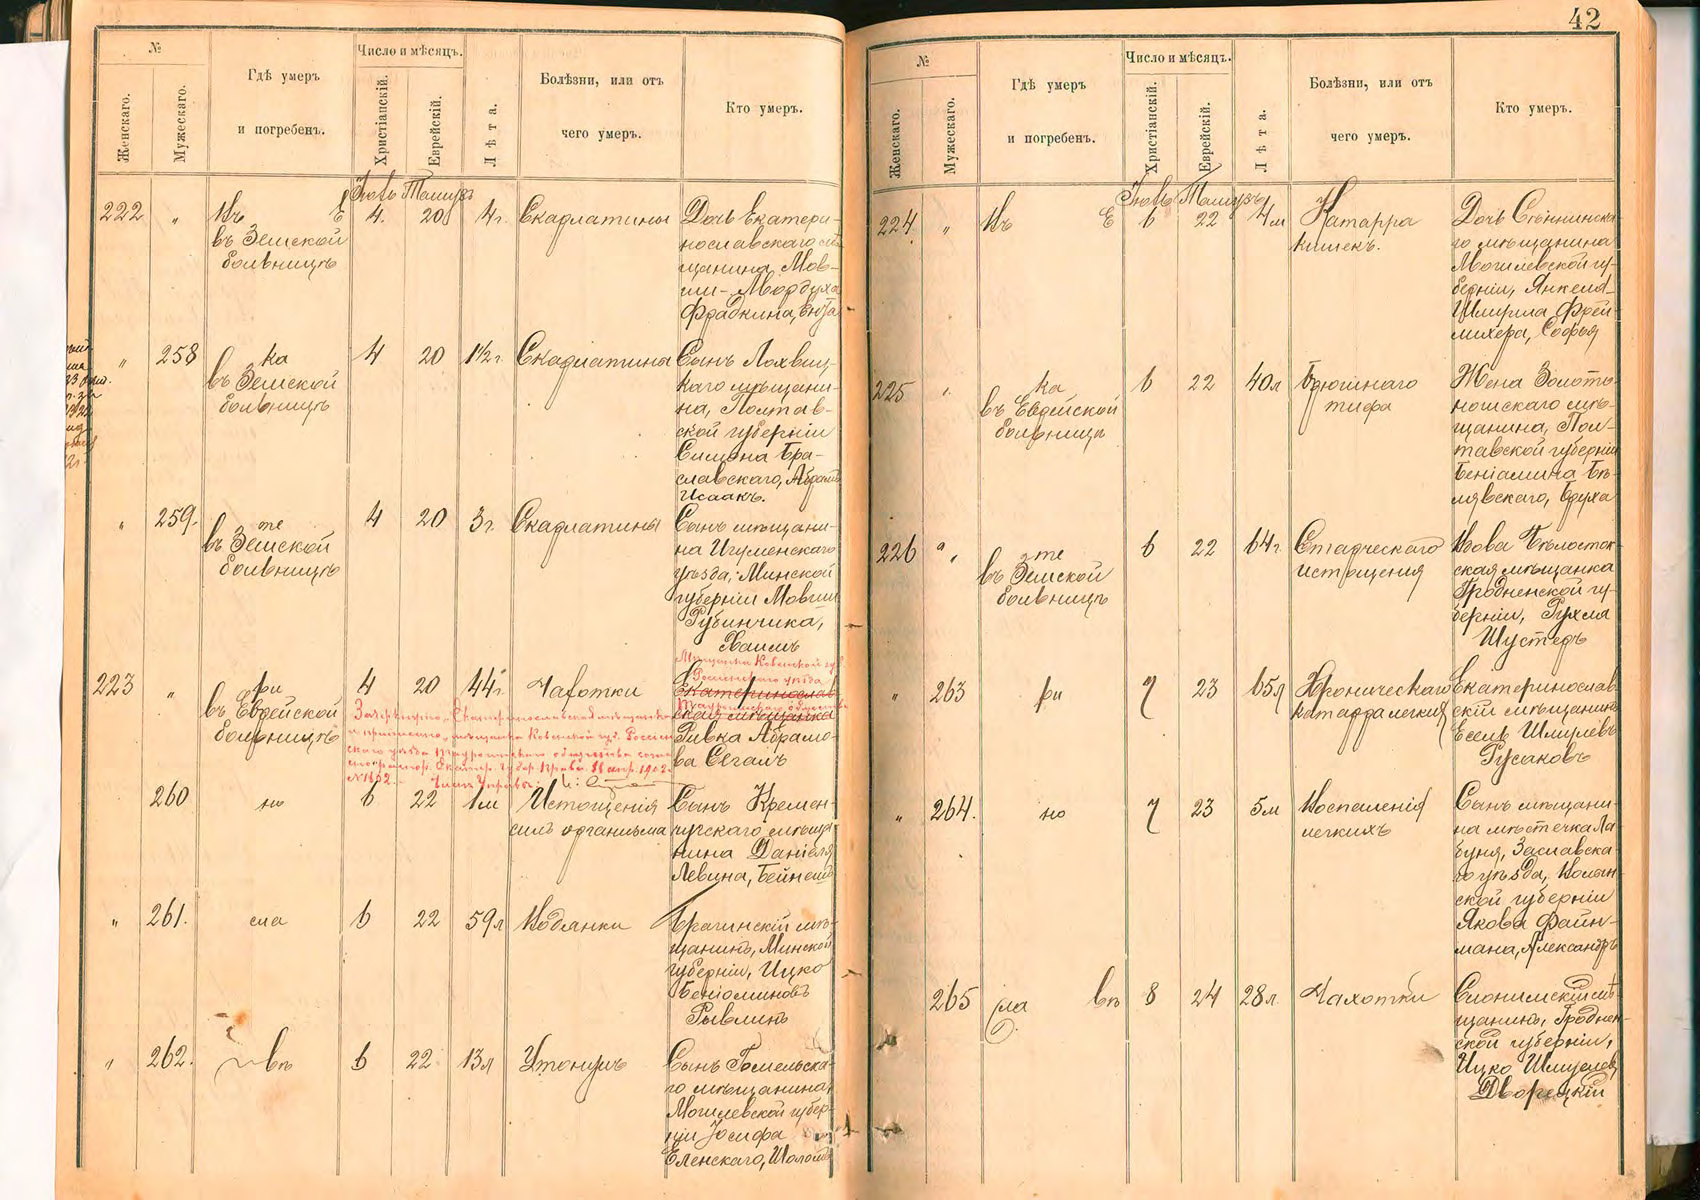 42
№
Женскаго.
Мужескаго.
Гдѣ умеръ
и погребенъ.
Число и мѣсяцъ.
Христіанскій.
Еврейскій.
Лѣта.
Болѣзни, или отъ
чего умеръ.
Кто умеръ.
Іюль Тамузъ
222 „
въ Земской
больницѣ
4. 20 4 г.
Скарлатины
Дочь Екатери-
нославскаго мѣ
щанина Мов-
ши-Мордуха
Фрадкина,
„ 258
въ Земской
больницѣ
4 20 1½ г.
Скарлатина
Сынъ Лохвиц-
каго мѣщани-
на, Полтав-
ской губерніи
Симона Бра-
славскаго, Абрамъ
Исаакъ.
„ 259.
въ Земской
больницѣ
4 20 3 г.
Скарлатины
Сынъ мѣщани-
на Игуменскаго
уѣзда, Минской
губерніи Мовши
Рубинчика,
Хаимъ
223 „
въ Еврейской
больницѣ
4 20 44 г.
Чахотки
Мѣщанка Ковенской губ.
Россіенскаго уѣзда
Таурогенскаго общества
Екатеринослав
ская мѣщанка
Ривка Абрамо-
ва Сегалъ
260 но
6 22 1 м
Истощенія
силъ организма
Сынъ Кремен-
чугскаго мѣща
нина Даніеля
Левина, Бейнешъ
„ 261. сла
6 22 59 л
Водянки
Брагинскій мѣ-
щанинъ, Минской
губерніи, Ицко
Беніоминовъ
Рывлинъ
„ 262.
6 22 13 л
Утонулъ
Сынъ Гомельска-
го мѣщанина,
Могилевской губер-
ніи Іосифа
Еленскаго, Шоломъ
№
Женскаго.
Мужескаго.
Гдѣ умеръ
и погребенъ.
Число и мѣсяцъ.
Христіанскій.
Еврейскій.
Лѣта.
Болѣзни, или отъ
чего умеръ.
Кто умеръ.
Іюль Тамузъ
224. „
6 22 4 м
Катарра
кишекъ.
Дочь Сѣннинска-
го мѣщанина
Могилевской гу-
берніи, Янкеля-
Шмуила Фрей-
михера, Софья
225 „
въ Еврейской
больницѣ
6 22 40 л
Брюшнаго
тифа
Жена Золото-
ношскаго мѣ-
щанина, Пол-
тавской губерніи
Беніамина Бѣ-
лявскаго, Бруха
226 „
въ Земской
больницѣ
6 22 64 г.
Старческаго
истощенія
Вдова Бѣлосток-
ская мѣщанка
Гродненской гу-
берніи, Рухля
Шустеръ
„ 263 ри
7 23 65 л
Хроническаго
катарра легкихъ
Екатеринослав
скій мѣщанинъ
Есель Шмулевъ
Русаковъ
„ 264. но
7 23 5 м
Воспаленія
легкихъ
Сынъ мѣщани-
на мѣстечка Ла-
буня, Заславска-
го уѣзда, Волын-
ской губерніи
Якова Файн-
мана, Александръ
265 сла
8 24 28 л.
Чахотки
Слонимскій мѣ-
щанинъ, Гроднен-
ской губерніи,
Ицко Шмуелевъ
Дворецкій